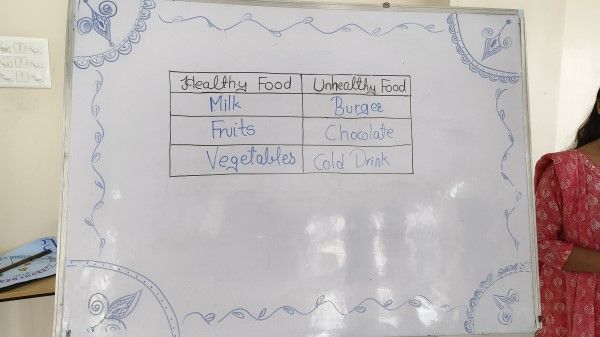 Healthy Food Unhealthy Food
Milk Burger
Fruits Chocolate
Vegetables Cold Drink